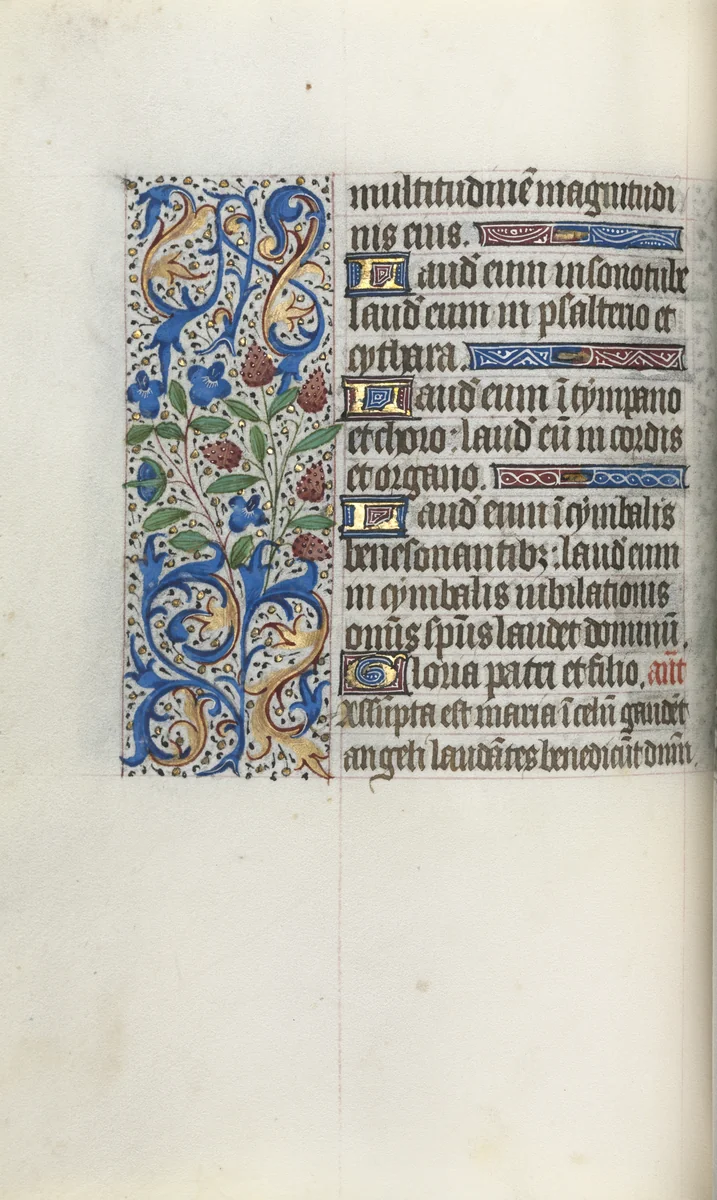 multitudinē magnitudi
nis eius.
Laud eum in sono tube
laud eum in psalterio et
cythara.
Laud eum ī tympano
et choro : laud eū in cordis
et organo.
Laud eum ī cymbalis
benesonantibꝫ : laud eum
in cymbalis iubilationis
omīs spūs laudet dominū.
Gloria patri et filio. an̄t
Assūpta est maria ī celū gaudēt
angeli laudātes benedicūt dnm̄.